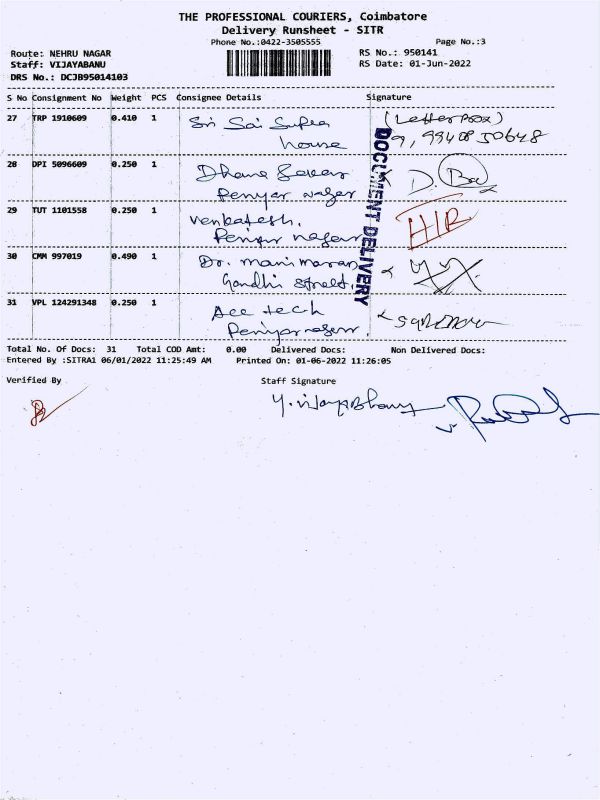 THE PROFESSIONAL COURIERS, Coimbatore
Delivery Runsheet - SITR
Phone No.:0422-3505555
Page No.:3
Route: NEHRU NAGAR
RS No.: 950141
Staff: VIJAYABANU
RS Date: 01-Jun-2022
DRS No.: DCJB95014103
S No Consignment No Weight PCS Consignee Details Signature
27 TRP 1910609 0.410 1 Sri Sai Supra (Letter Box)
house
28 DPI 5096609 0.250 1 D.
Periyar nager
29 TUT 1101558 0.250 1 Venkatesh.
Periyar nager
30 CMM 997019 0.490 1 Dr. mani maran
Gandhi street.
31 VPL 124291348 0.250 1 Ace tech
Periyar nager
DOCUMENT DELIVERY
Total No. Of Docs: 31 Total COD Amt: 0.00 Delivered Docs: Non Delivered Docs:
Entered By :SITRA1 06/01/2022 11:25:49 AM Printed On: 01-06-2022 11:26:05
Verified By Staff Signature